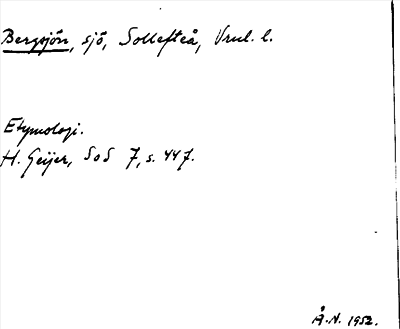 Bergsjön, sjö, Sollefteå, Vrml. l.
Etymologi.
H. Geijer, SoS 7, s. 447.
Å.N. 1952.